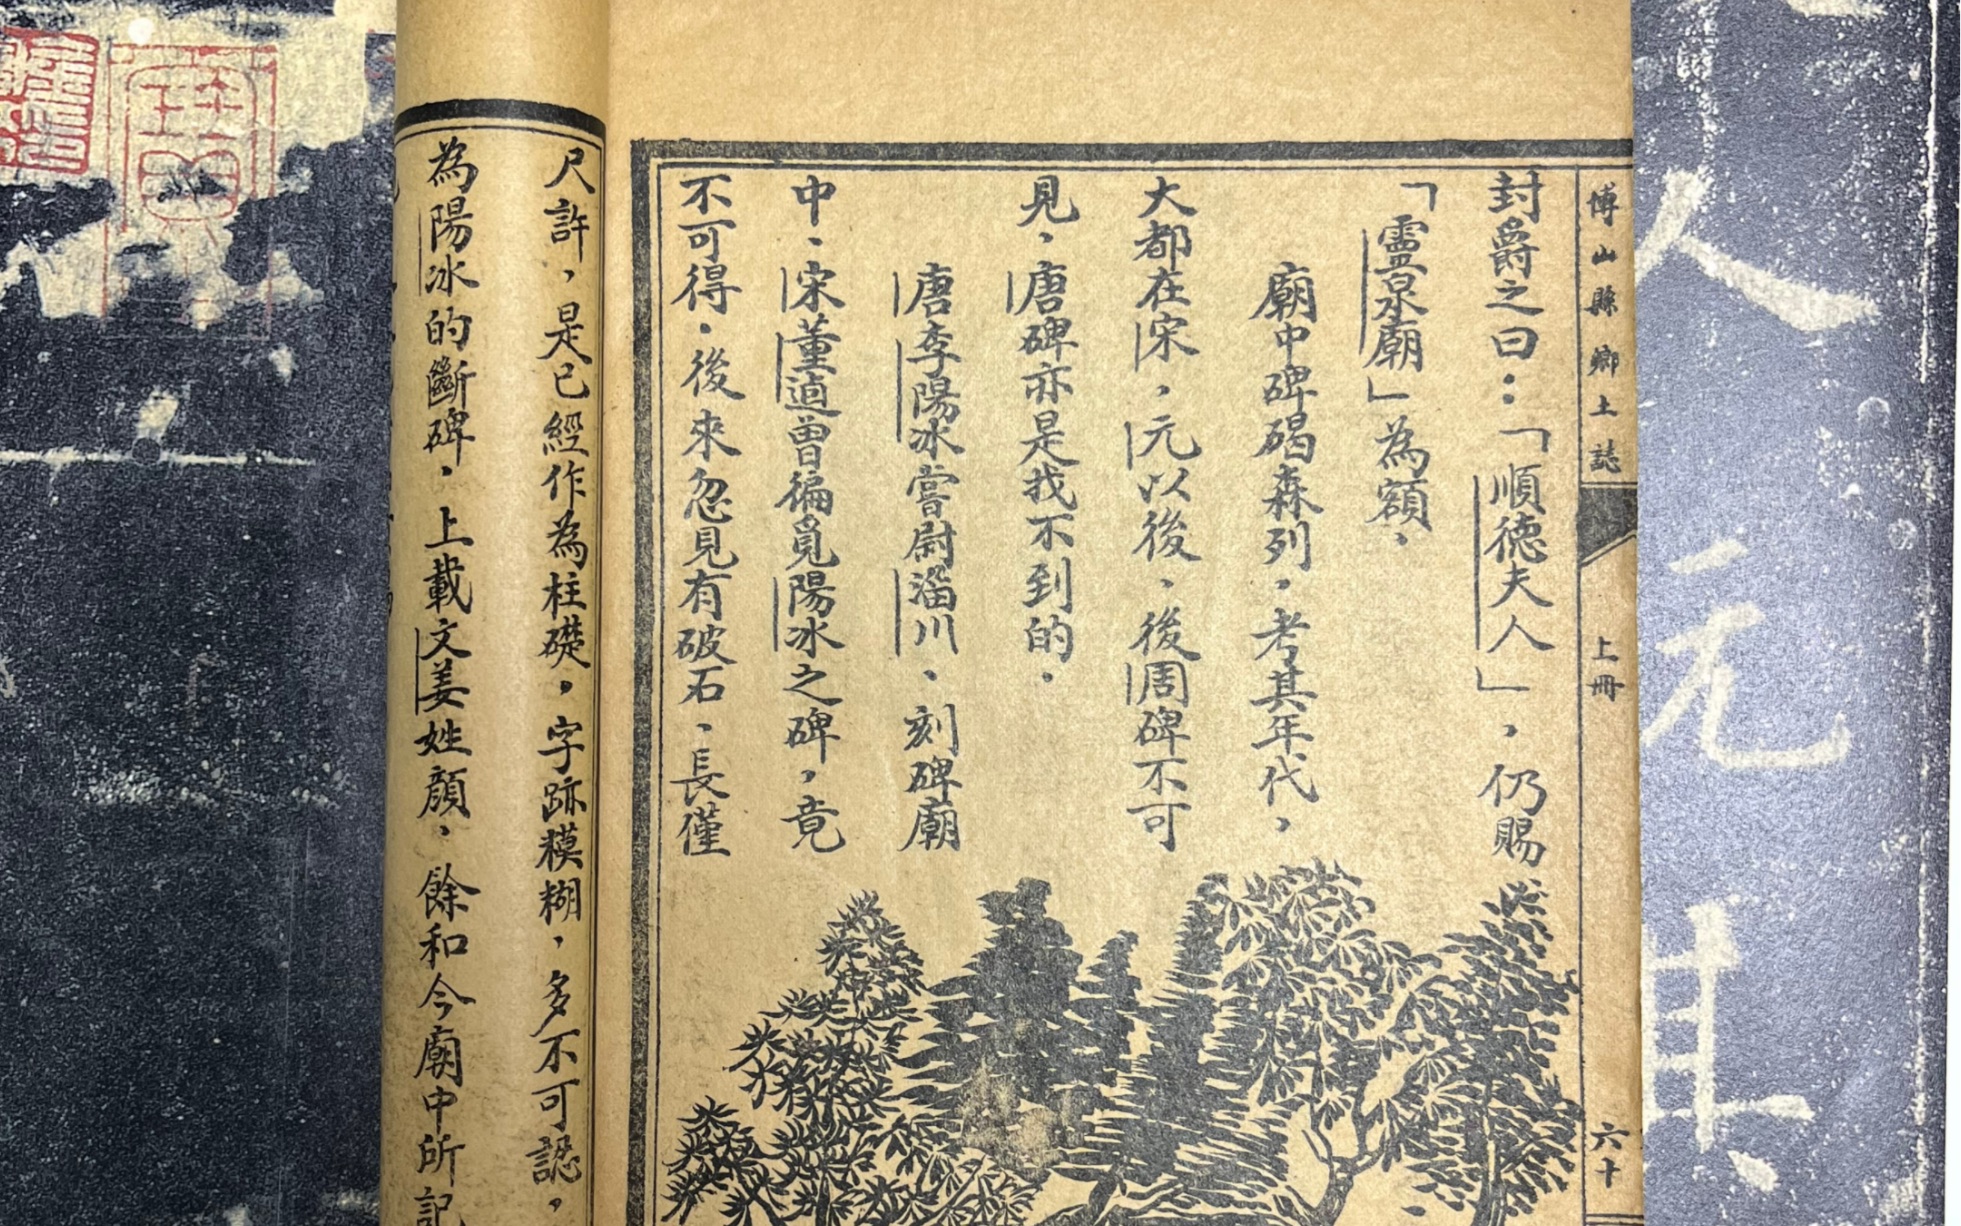 博山縣鄉土誌
上冊
六十
封爵之曰：「順德夫人」，仍賜
「靈泉廟」為額，
廟中碑碣森列，考其年代，
大都在宋，元以後，後周碑不可
見，唐碑亦是找不到的．
唐李陽冰嘗尉淄川、刻碑廟
中、宋董逌曾徧覓陽冰之碑，竟
不可得．後來忽見有破石、長僅
尺許，是已經作為柱礎，字跡糢糊，多不可認，
為陽冰的斷碑，上載文姜姓顏，餘和今廟中所記
人
元
其